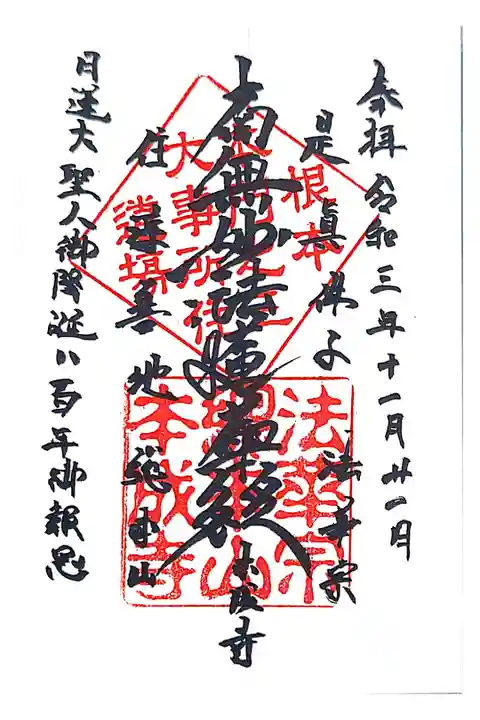 奉拝 令和三年十一月廿一日
是真佛子 法華宗
南無妙法蓮華経 本成寺
住淳善地 総本山
日蓮大聖人御降誕八百年御報恩
根本
大事所
道場
法華宗
総本山
本成寺